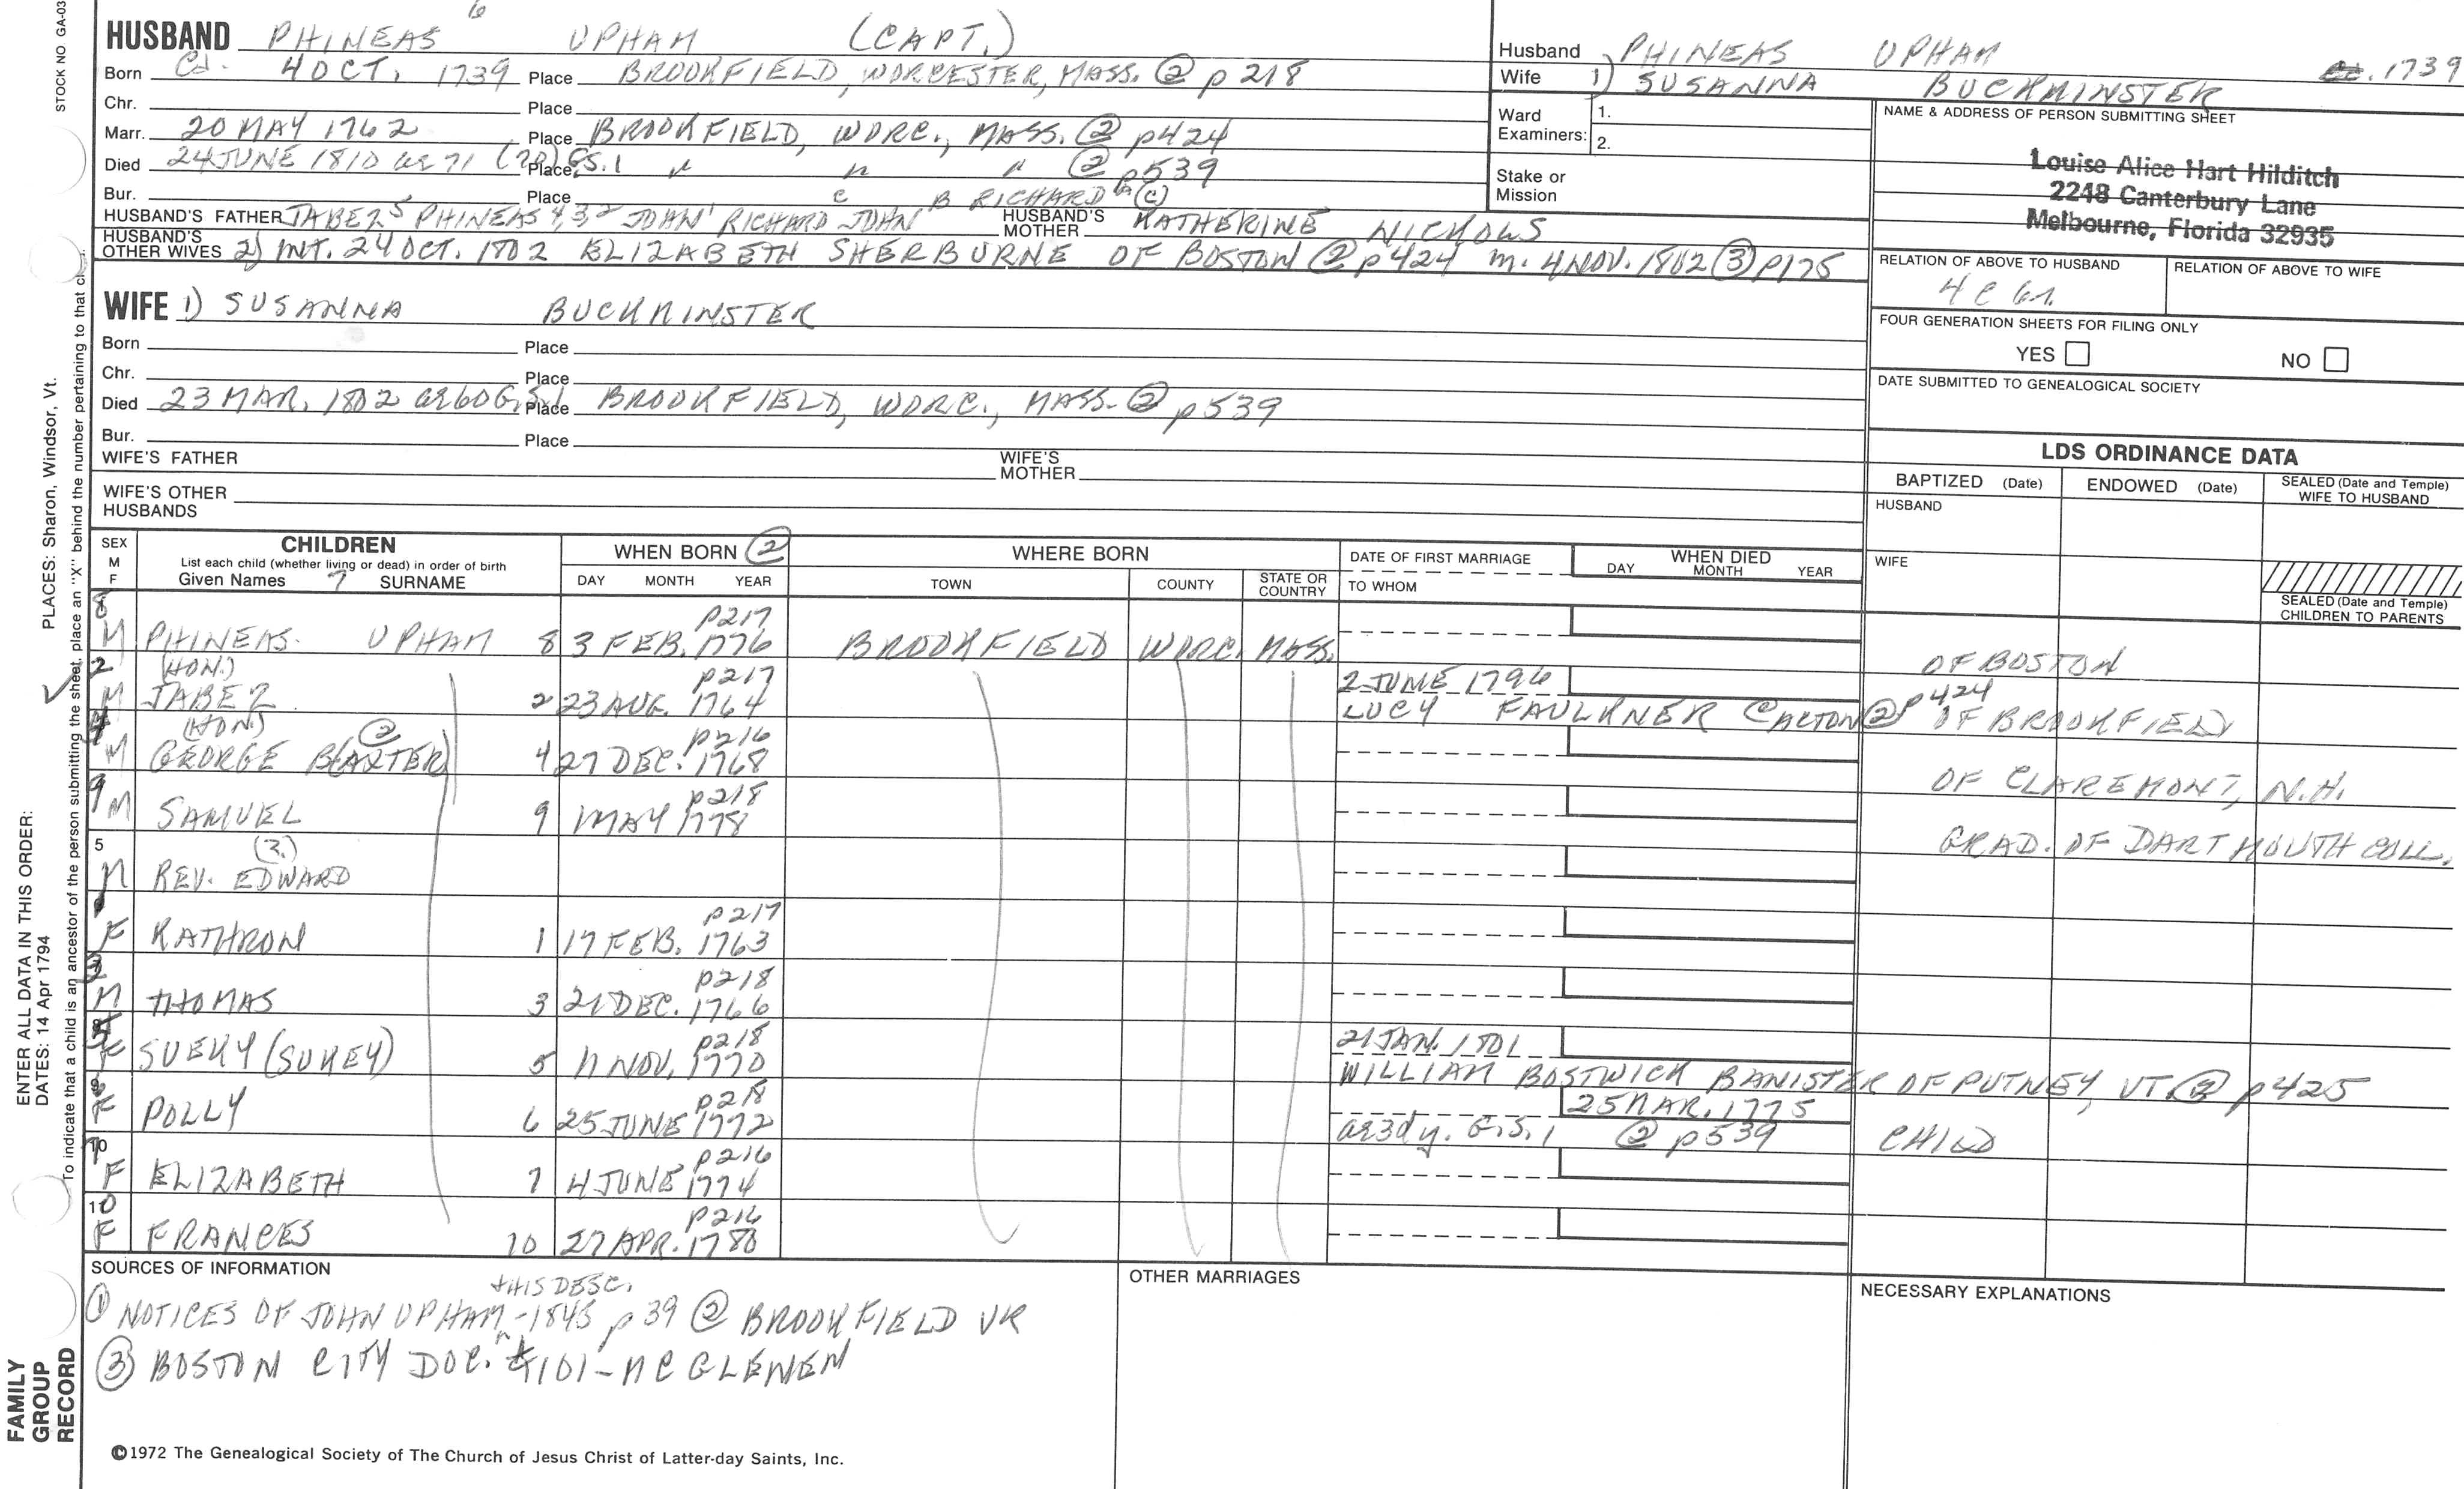 STOCK NO GA-03
HUSBAND PHINEAS 6 UPHAM (CAPT.)
Born Cd. 4 OCT. 1739 Place BROOKFIELD, WORCESTER, MASS. ② p 218
Chr. Place
Marr. 20 MAY 1762 Place BROOKFIELD, WORC., MASS. ② p424
Died 24 JUNE 1810 ae 71 (70) G.S.1 Place " " " ② p539
Bur. Place
HUSBAND'S FATHER JABEZ 5 PHINEAS 4,3,2 JOHN 1 RICHARD A JOHN B RICHARD C (C) HUSBAND'S MOTHER KATHERINE NICHOLS
HUSBAND'S OTHER WIVES 2) INT. 24 OCT. 1802 ELIZABETH SHERBURNE OF BOSTON ② p424 m. 4 NOV. 1802 ③ p175
WIFE 1) SUSANNA BUCKMINSTER
Born Place
Chr. Place
Died 23 MAR. 1802 ae 60 G.S.1 Place BROOKFIELD, WORC., MASS. ② p539
Bur. Place
WIFE'S FATHER WIFE'S MOTHER
WIFE'S OTHER HUSBANDS
Husband PHINEAS UPHAM 1739
Wife 1) SUSANNA BUCKMINSTER
Ward Examiners: 1.
2.
Stake or Mission
NAME & ADDRESS OF PERSON SUBMITTING SHEET
Louise Alice Hart Hilditch
2248 Canterbury Lane
Melbourne, Florida 32935
RELATION OF ABOVE TO HUSBAND RELATION OF ABOVE TO WIFE
4 C 6 r.
FOUR GENERATION SHEETS FOR FILING ONLY
YES NO
DATE SUBMITTED TO GENEALOGICAL SOCIETY
LDS ORDINANCE DATA
BAPTIZED (Date) ENDOWED (Date) SEALED (Date and Temple) WIFE TO HUSBAND
HUSBAND
WIFE
SEALED (Date and Temple) CHILDREN TO PARENTS
SEX M F CHILDREN WHEN BORN ② WHERE BORN DATE OF FIRST MARRIAGE WHEN DIED
List each child (whether living or dead) in order of birth
Given Names 7 SURNAME DAY MONTH YEAR TOWN COUNTY STATE OR COUNTRY TO WHOM DAY MONTH YEAR
8 M PHINEAS UPHAM 8 3 FEB. 1776 p217 BROOKFIELD WORC. MASS. OF BOSTON
2 M (HON.) JABEZ 2 23 AUG. 1764 p217 2 JUNE 1796 LUCY FAULKNER @ ACTON ② p424 OF BROOKFIELD
4 M (HON.) GEORGE B(AXTER) ② 4 27 DEC. 1768 p216 OF CLAREMONT, N.H.
9 M SAMUEL 9 MAY 1778 p218 GRAD. OF DARTMOUTH COLL.
5 M REV. EDWARD (?)
F KATHRON 1 17 FEB. 1763 p217
3 M THOMAS 3 21 DEC. 1766 p218
5 F SUEKY (SUKEY) 5 11 NOV. 1770 p218 21 JAN. 1801 WILLIAM BOSTWICK BANISTER OF PUTNEY, VT. ② p425
6 F POLLY 6 25 JUNE 1772 p218 25 MAR. 1775 ae 3 dy. G.S.1 ② p539 CHILD
F ELIZABETH 7 4 JUNE 1774 p216
10 F FRANCES 10 27 APR. 1780 p216
SOURCES OF INFORMATION
① NOTICES OF JOHN UPHAM + HIS DESC. - 1845 p 39 ② BROOKFIELD VR
③ BOSTON CITY DOC. #101 - MC GLENEN
OTHER MARRIAGES
NECESSARY EXPLANATIONS
©1972 The Genealogical Society of The Church of Jesus Christ of Latter-day Saints, Inc.
FAMILY GROUP RECORD
ENTER ALL DATA IN THIS ORDER:
DATES: 14 Apr 1794
PLACES: Sharon, Windsor, Vt.
To indicate that a child is an ancestor of the person submitting the sheet, place an "X" behind the number pertaining to that